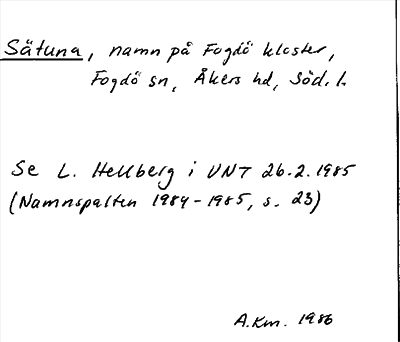 Sätuna, namn på Fogdö kloster,
Fogdö sn, Åkers hd, Söd. l.
Se L. Hellberg i UNT 26.2.1985
(Namnspalten 1984-1985, s. 23)
A.Km. 1986